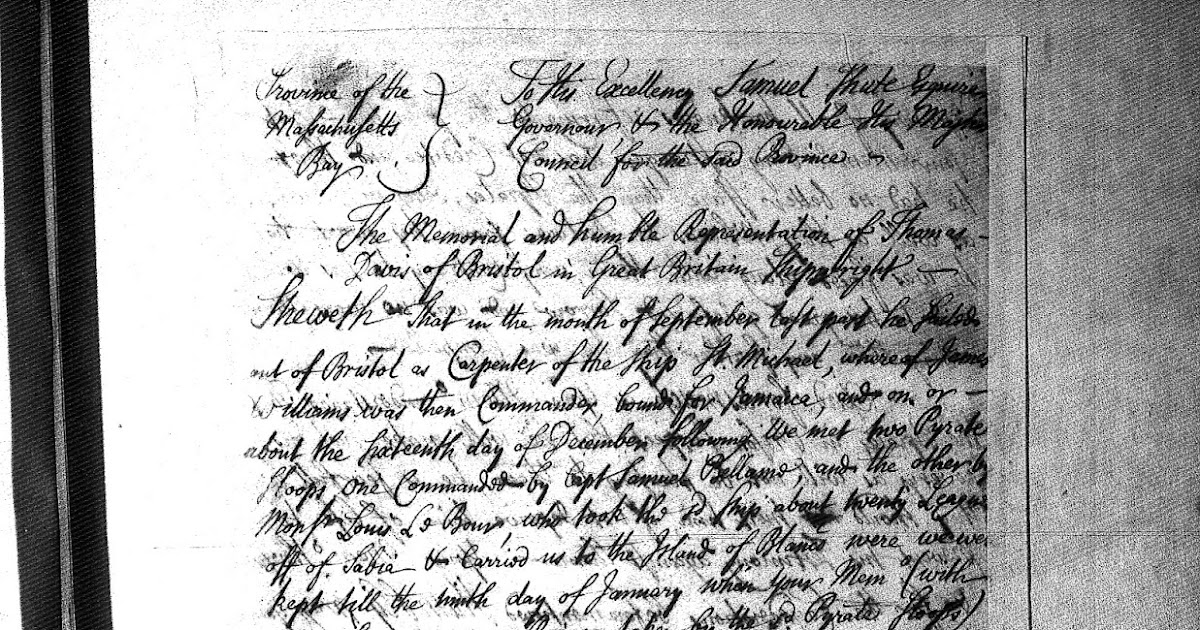 Province of the
Massachusetts
Bay
To His Excellency Samuel Shute Esquire
Governour & the Honourable His Majties
Council for the said Province
The Memorial and humble Representation of Thomas
Davis of Bristol in Great Britain Shipwright
Sheweth That in the month of September last past he Sailed
out of Bristol as Carpenter of the Ship St. Michael, whereof James
Williams was then Commander bound for Jamaica, and on or
about the sixteenth day of December following We met two Pyrate
Sloops one Commanded by Capt Samuel Bellame, and the other by
Monsr Louis Le Bour, who took the sd Ship about twenty Leagues
off of Sabia & Carried us to the Island of Blanco were we were
kept till the ninth day of January when your Memo (with
the sd Pyrate Sloops)